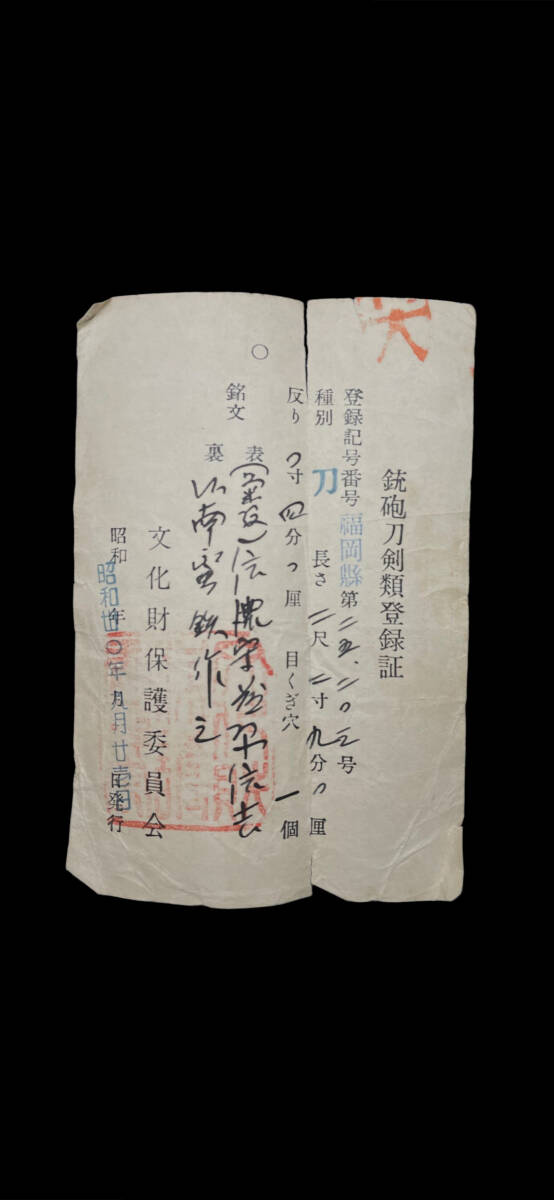 銃砲刀剣類登録証
登録記号番号 福岡縣 第二五.二〇三号
種別 刀 長さ 二尺二寸九分〇厘
反り 〇寸四分〇厘 目くぎ穴 一個
銘文 表
裏 以南蛮鉄作之
文化財保護委員会
昭和 年 月 日発行
昭和 〇年九月廿壹日